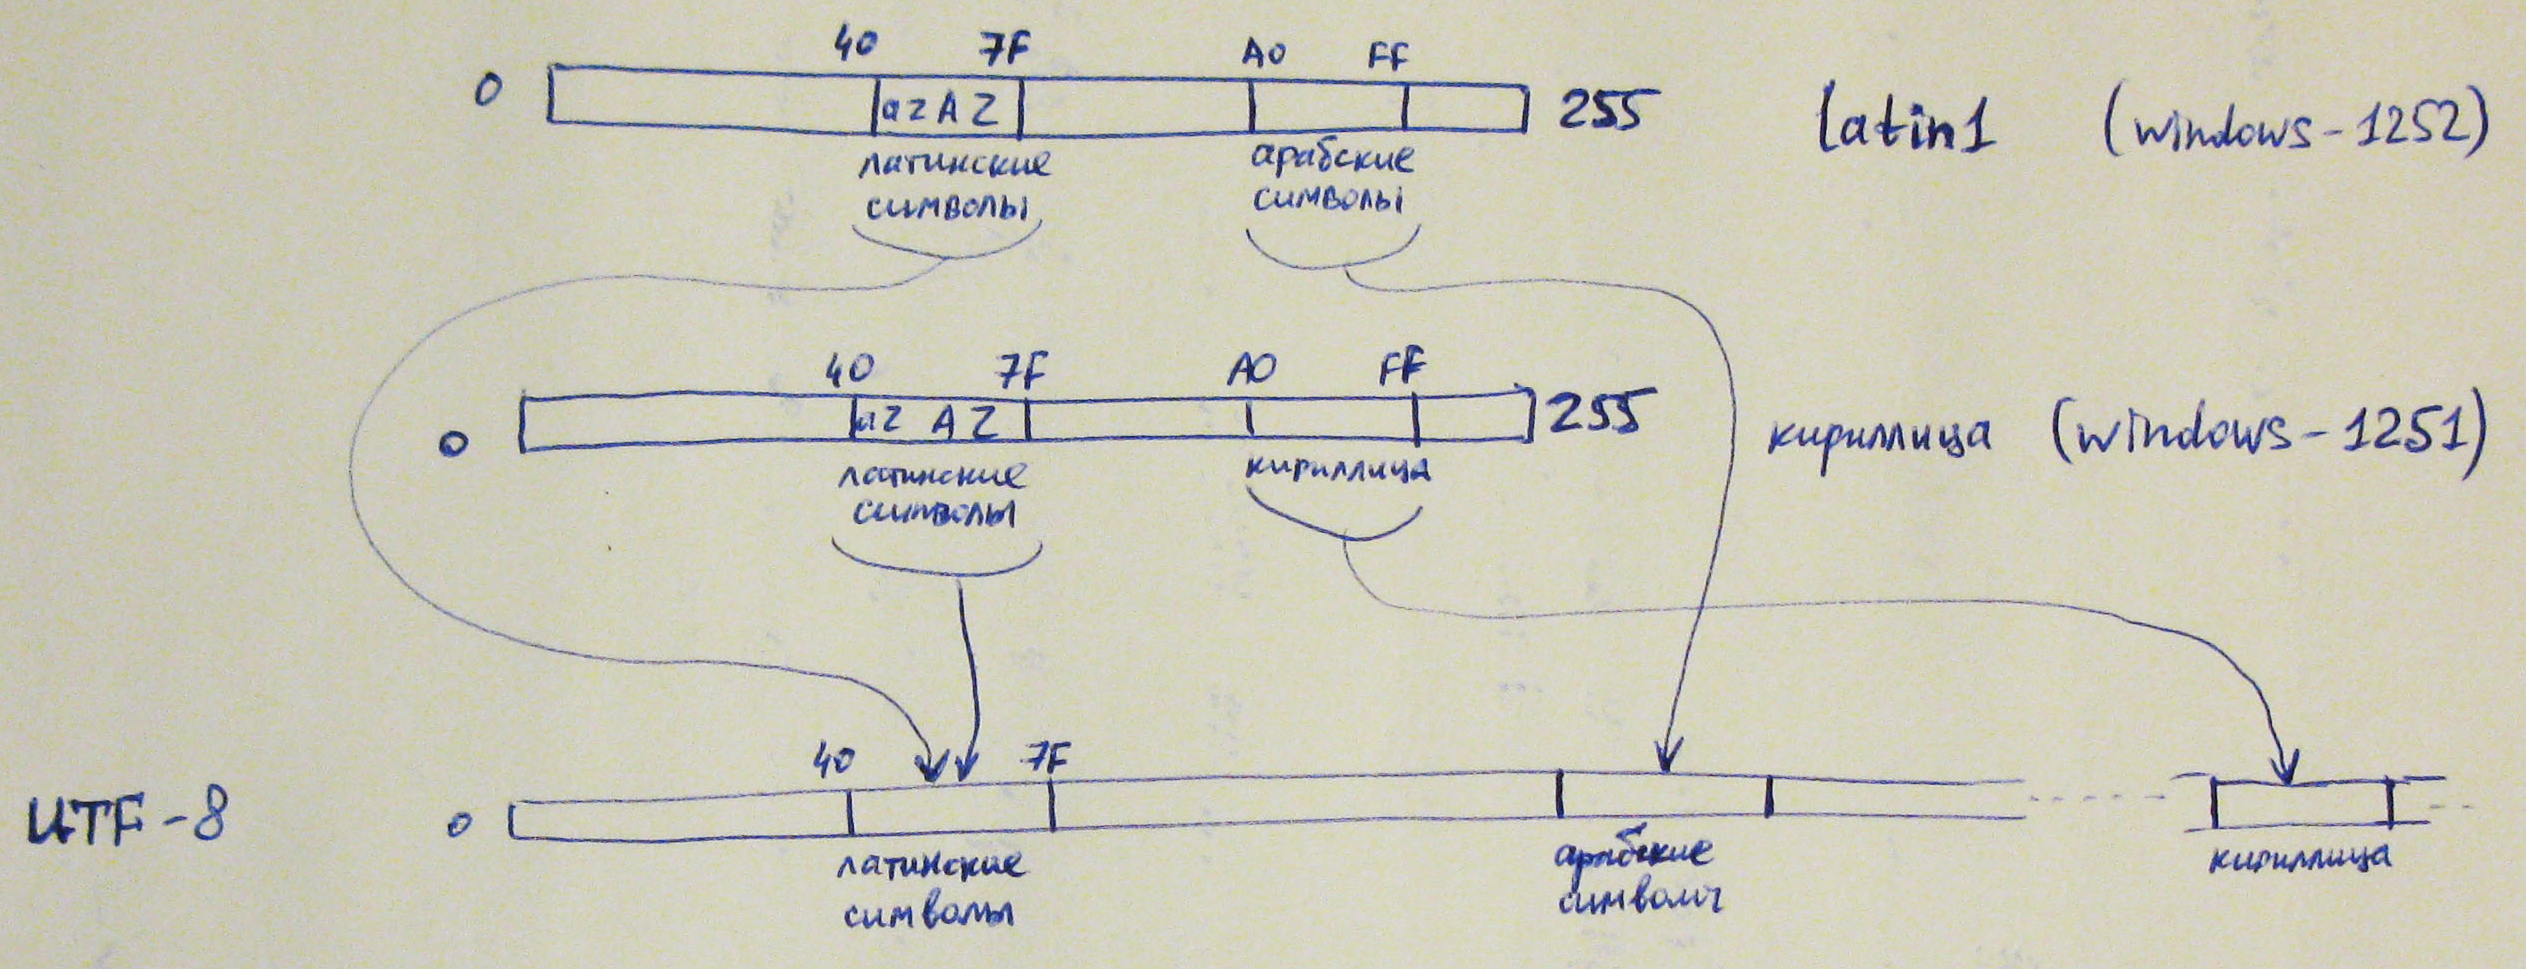 40 7F A0 FF
0 az A Z 255 latin1 (windows-1252)
латинские арабские
символы символы
40 7F A0 FF
0 az A Z 255 кириллица (windows-1251)
латинские кириллица
символы
40 7F
UTF-8 0
латинские арабские кириллица
символы символы